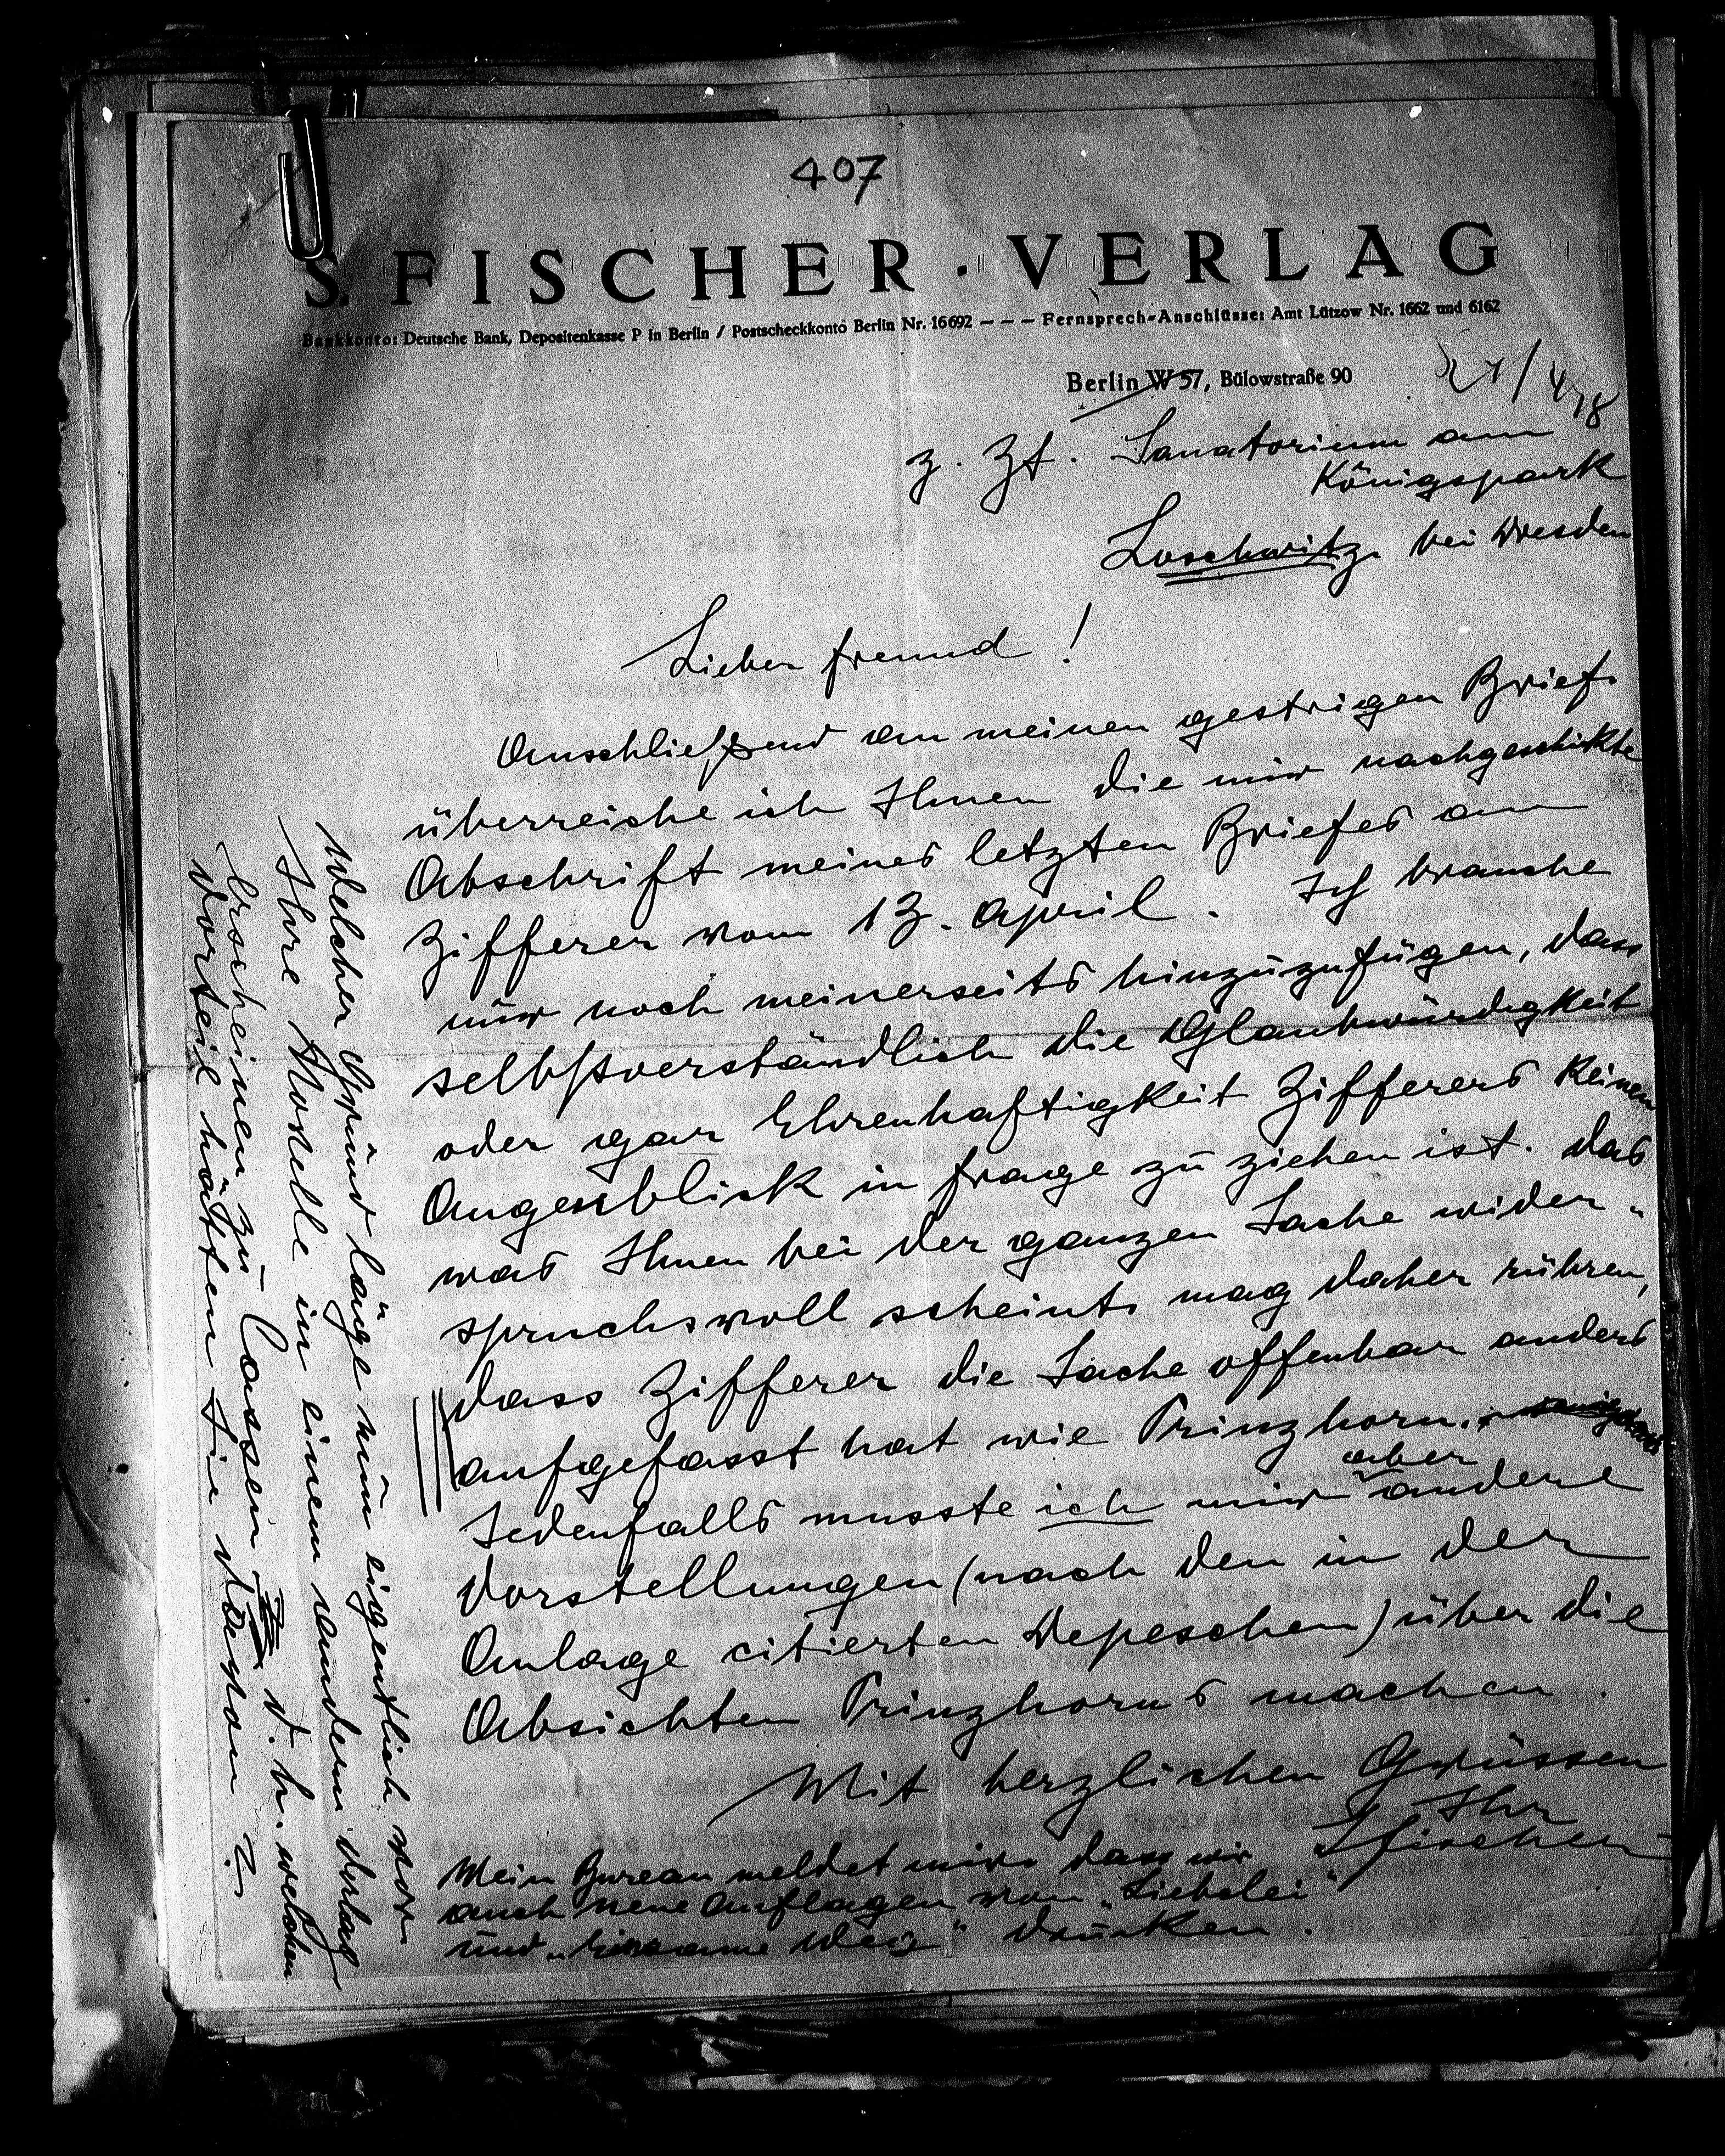 407
S. FISCHER · VERLAG
Bankkonto: Deutsche Bank, Depositenkasse P in Berlin / Postscheckkonto Berlin Nr. 16692 – – – Fernsprech-Anschlüsse: Amt Lützow Nr. 1662 und 6162
Berlin W 57, Bülowstraße 90
21/4 18
z. Zt. Sanatorium am
Königspark
Loschwitz bei Dresden
Lieber Freund!
Anschließend an meinen gestrigen Brief
überreiche ich Ihnen die mir nachgeschickte
Abschrift meines letzten Briefes an
Zifferer vom 13. April. Ich brauche
nur noch meinerseits hinzuzufügen, dass
selbstverständlich die Glaubwürdigkeit
oder gar Ehrenhaftigkeit Zifferers keinen
Augenblick in Frage zu ziehen ist. Das
was Ihnen bei der ganzen Sache wider-
spruchsvoll scheint, mag daher rühren,
dass Zifferer die Sache offenbar anders
aufgefasst hat wie Prinzhorn.
Jedenfalls musste ich mir aber andere
Vorstellungen (nach den in der
Anlage citierten Depeschen) über die
Absichten Prinzhorns machen.
Mit herzlichen Grüssen
Ihr
SFischer
Mein Bureau meldet mir, dass wir
auch neue Auflagen von „Liebelei"
und „Einsame Weg" drucken.
Welcher Grund läge nun eigentlich vor
Ihre Novelle in einem andern Verlag
erscheinen zu lassen d. h. welchen
Vorteil hätten Sie davon?